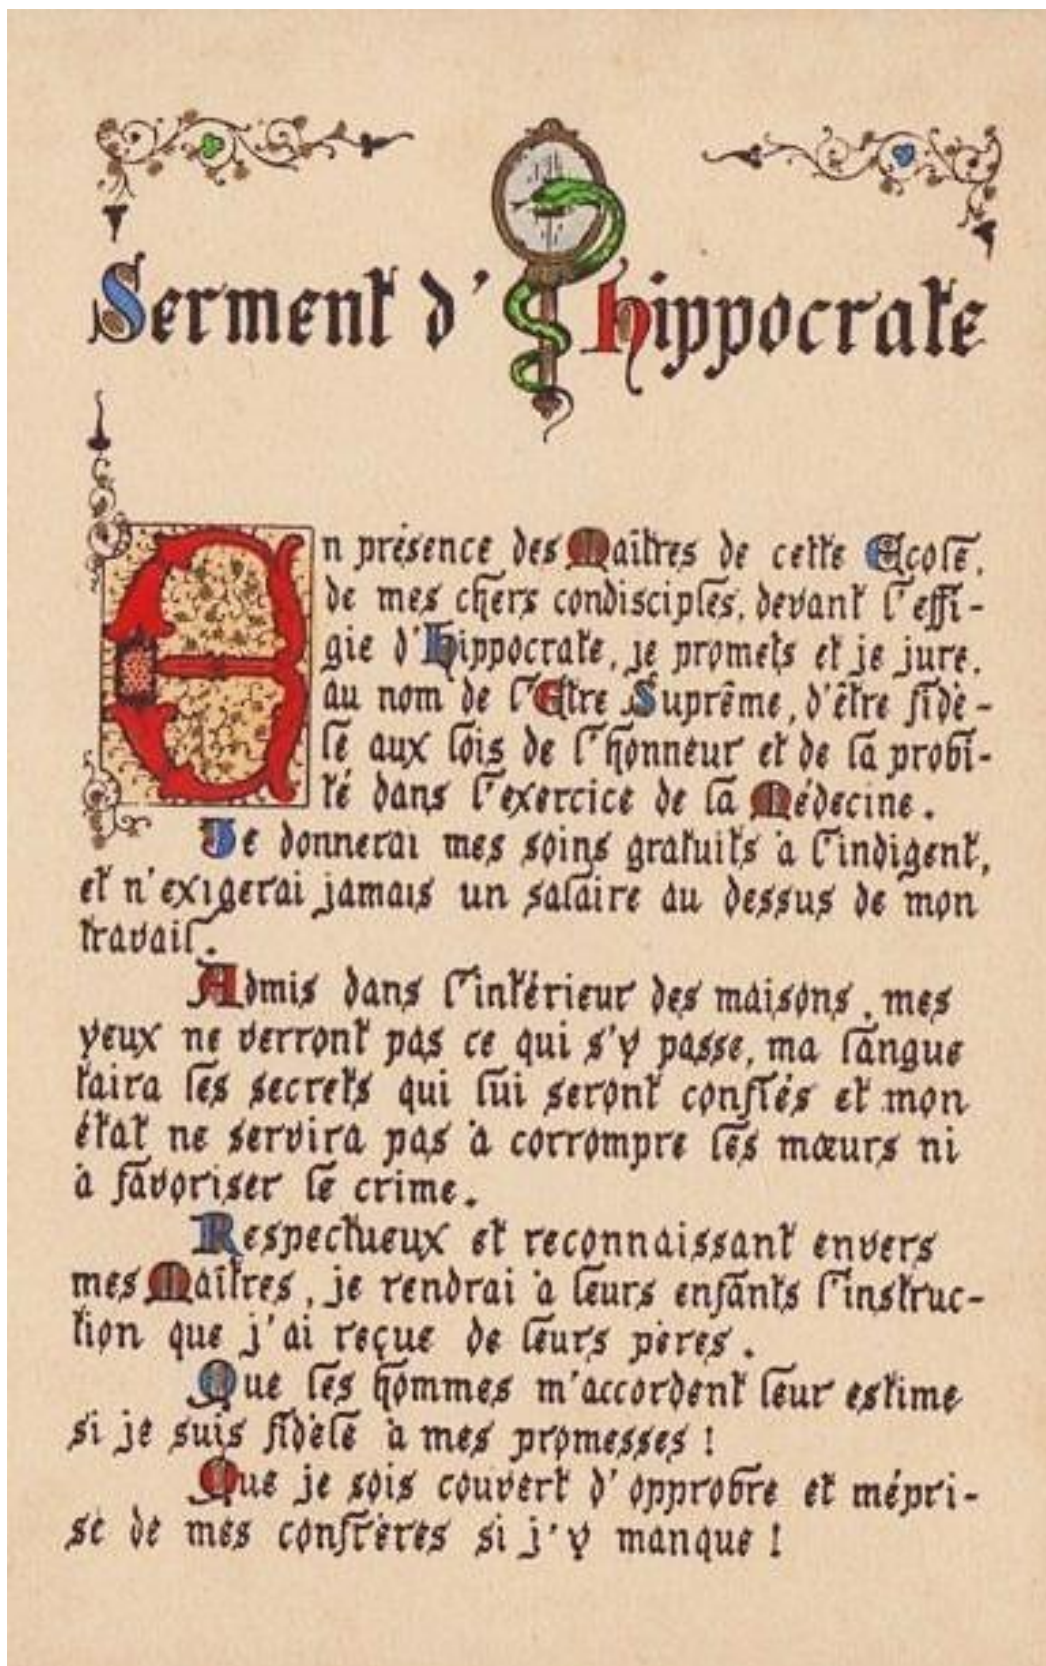 Serment d'hippocrate
En présence des Maîtres de cette Ecole,
de mes chers condisciples, devant l'effi-
gie d'hippocrate, je promets et je jure,
au nom de l'Etre Suprême, d'être fidè-
le aux lois de l'honneur et de la probi-
té dans l'exercice de la Médecine.
Je donnerai mes soins gratuits à l'indigent,
et n'exigerai jamais un salaire au dessus de mon
travail.
Admis dans l'intérieur des maisons, mes
yeux ne verront pas ce qui s'y passe, ma langue
taira les secrets qui lui seront confiés et mon
état ne servira pas à corrompre les mœurs ni
à favoriser le crime.
Respectueux et reconnaissant envers
mes Maîtres, je rendrai à leurs enfants l'instruc-
tion que j'ai reçue de leurs pères.
Que les hommes m'accordent leur estime
si je suis fidèle à mes promesses !
Que je sois couvert d'opprobre et mépri-
sé de mes confrères si j'y manque !